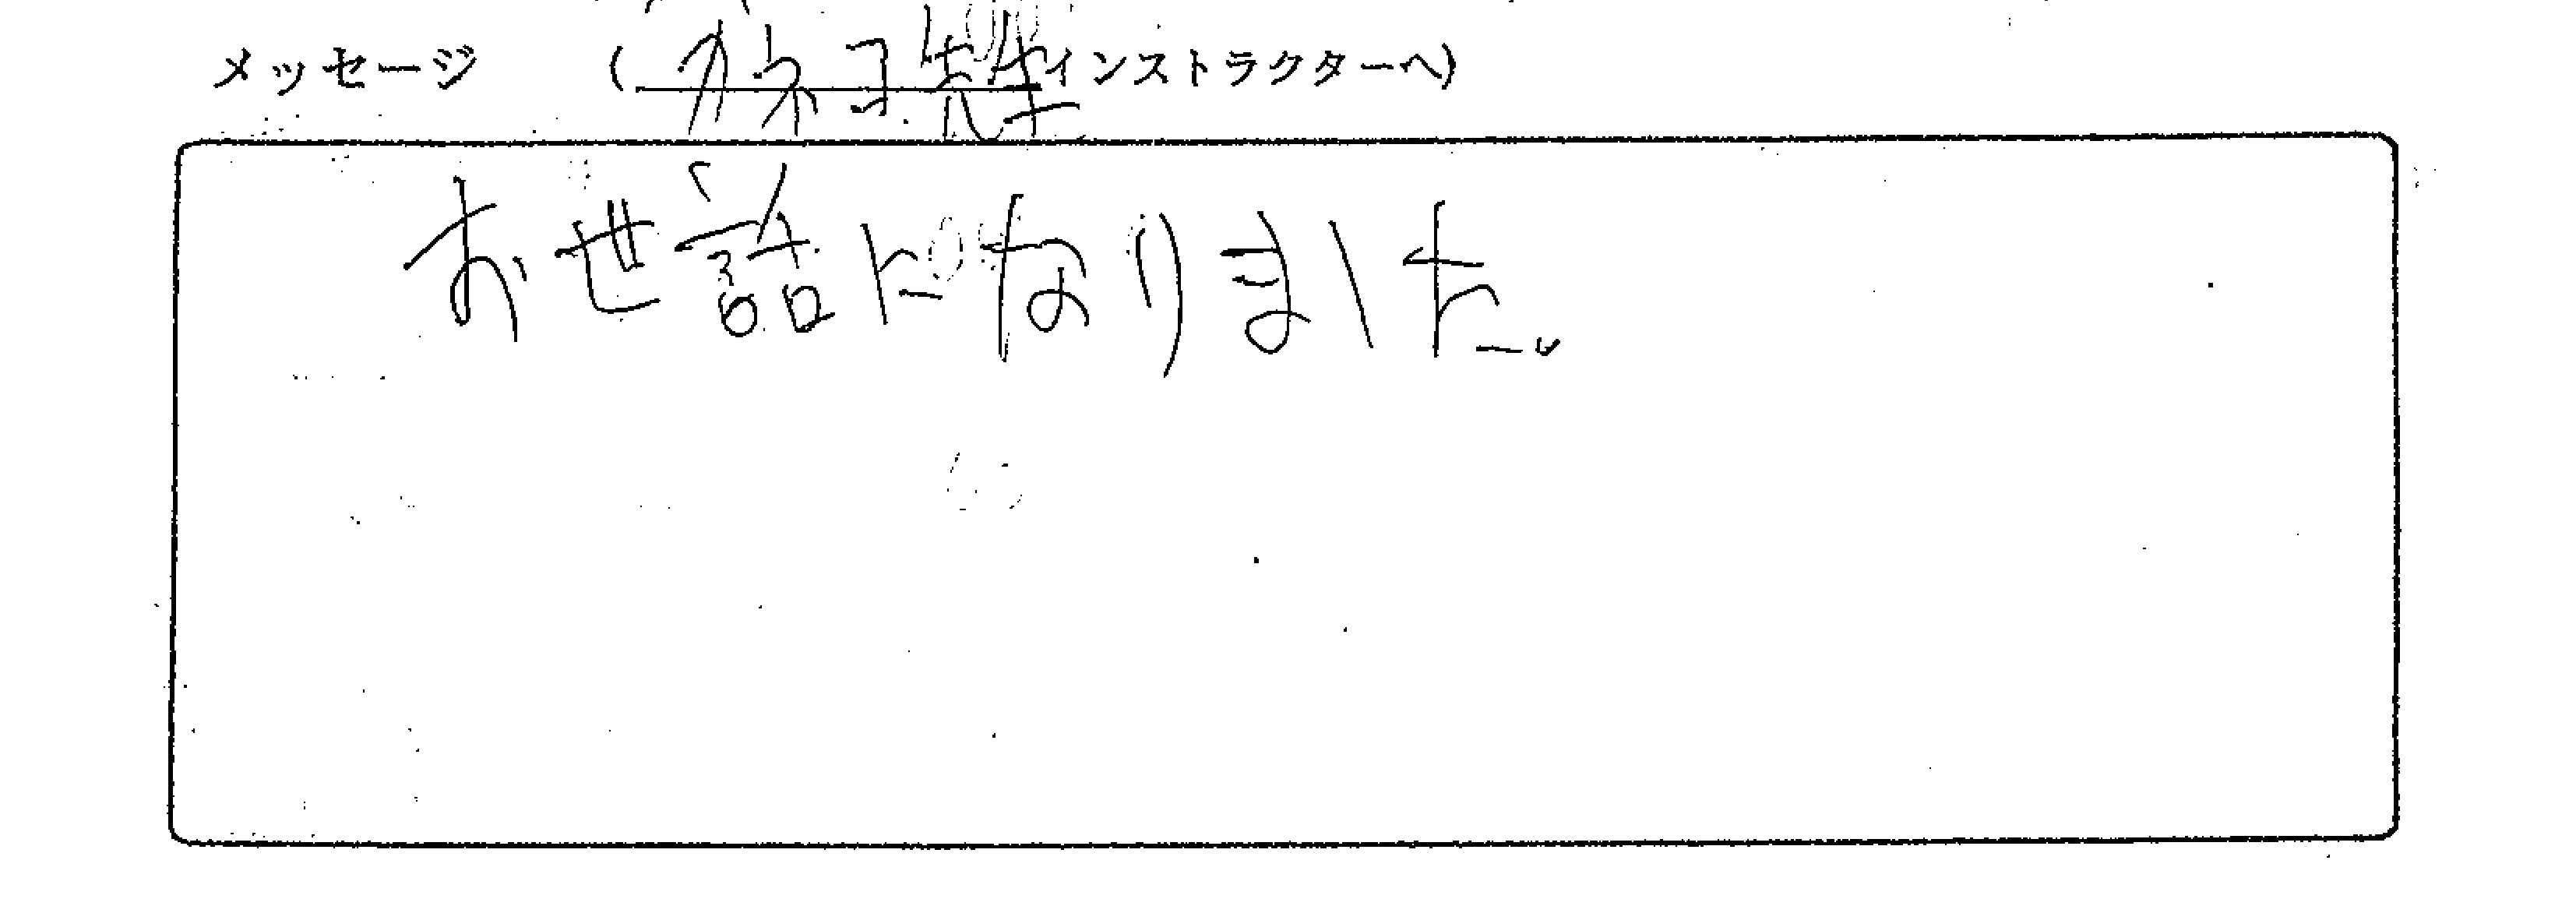 メッセージ (カネコ先生インストラクターへ)
お世話になりました。